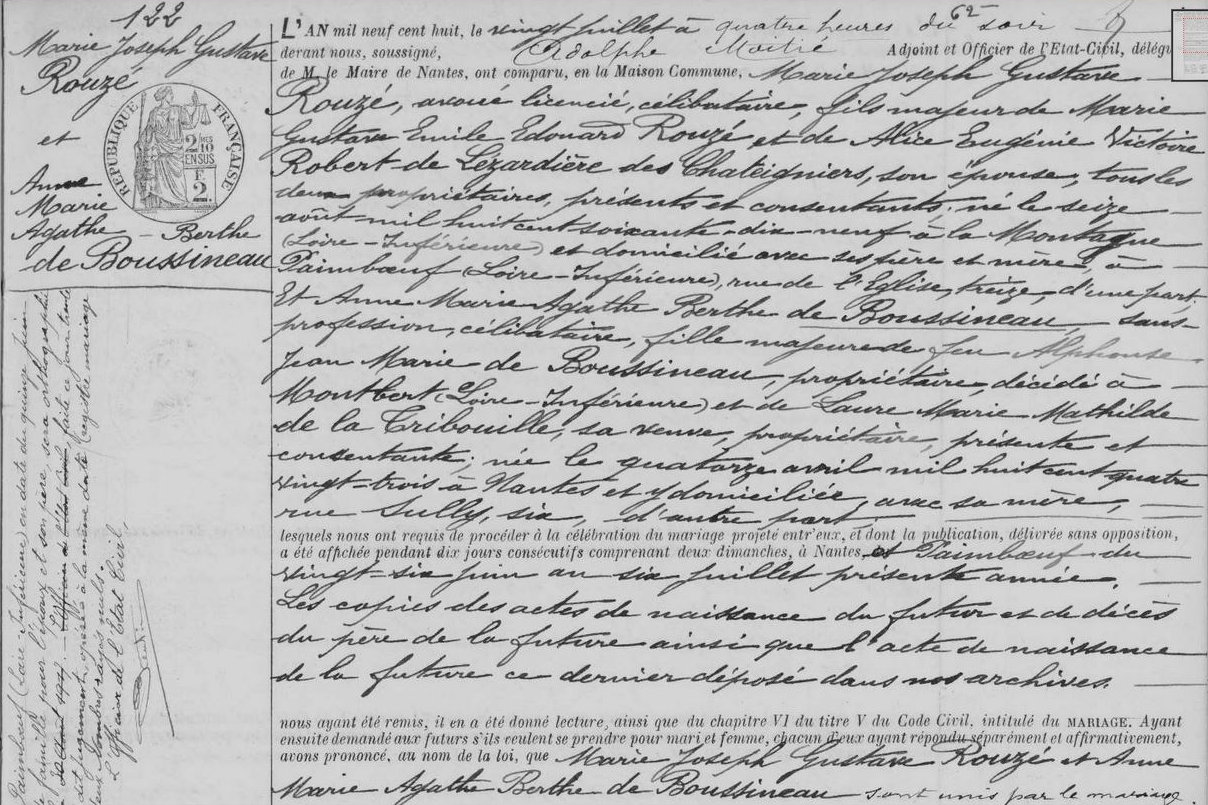 122
Marie Joseph Gustave
Rouzé
et
Anne
Marie
Agathe - Berthe
de Boussineau
RÉPUBLIQUE FRANÇAISE
2 MES
10
EN SUS
F
2
L'AN mil neuf cent huit, le vingt juillet à quatre heures du soir
devant nous, soussigné, Adolphe Adjoint et Officier de l'Etat-Civil, délégu
de M. le Maire de Nantes, ont comparu, en la Maison Commune, Marie Joseph Gustave
Rouzé, avoué licencié, célibataire, fils majeur de Marie
Gustave Emile Edouard Rouzé et de Alice Eugénie Victoire
Robert de Lezardière des Chateigniers, son épouse, tous les
deux propriétaires, présents et consentants, né le seize
août mil huit cent soixante-dix-neuf à la Montagne
(Loire-Inférieure) et domicilié avec ses père et mère, à
Paimbœuf (Loire-Inférieure), rue de l'Eglise, treize, d'une part,
Et Anne Marie Agathe Berthe de Boussineau, sans-
profession, célibataire, fille majeure de feu Alphonse
Jean Marie de Boussineau, propriétaire, décédé à
Montbert (Loire-Inférieure) et de Laure Marie Mathilde
de la Tribouille, sa veuve, propriétaire, présente et
consentante; née le quatorze avril mil huit cent quatre
vingt-trois à Nantes et y domiciliée, avec sa mère,
rue Sully, six, d'autre part
lesquels nous ont requis de procéder à la célébration du mariage projeté entr'eux, et dont la publication, délivrée sans opposition,
a été affichée pendant dix jours consécutifs comprenant deux dimanches, à Nantes, et Paimbœuf du
vingt-six juin au six juillet présente année.
Les copies des actes de naissance du futur et de décès
du père de la future ainsi que l'acte de naissance
de la future ce dernier déposé dans nos archives.
nous ayant été remis, il en a été donné lecture, ainsi que du chapitre VI du titre V du Code Civil, intitulé du MARIAGE. Ayant
ensuite demandé aux futurs s'ils veulent se prendre pour mari et femme, chacun d'eux ayant répondu séparément et affirmativement,
avons prononcé, au nom de la loi, que Marie Joseph Gustave Rouzé et Anne
Marie Agathe Berthe de Boussineau sont unis par le mariage.
Paimbœuf (Loire Inférieure) en date du quinze juin
famille pour l'époux et son père, sera orthographié
dit jugement opérée à la même date (registre mariage
L'Officier de l'Etat Civil